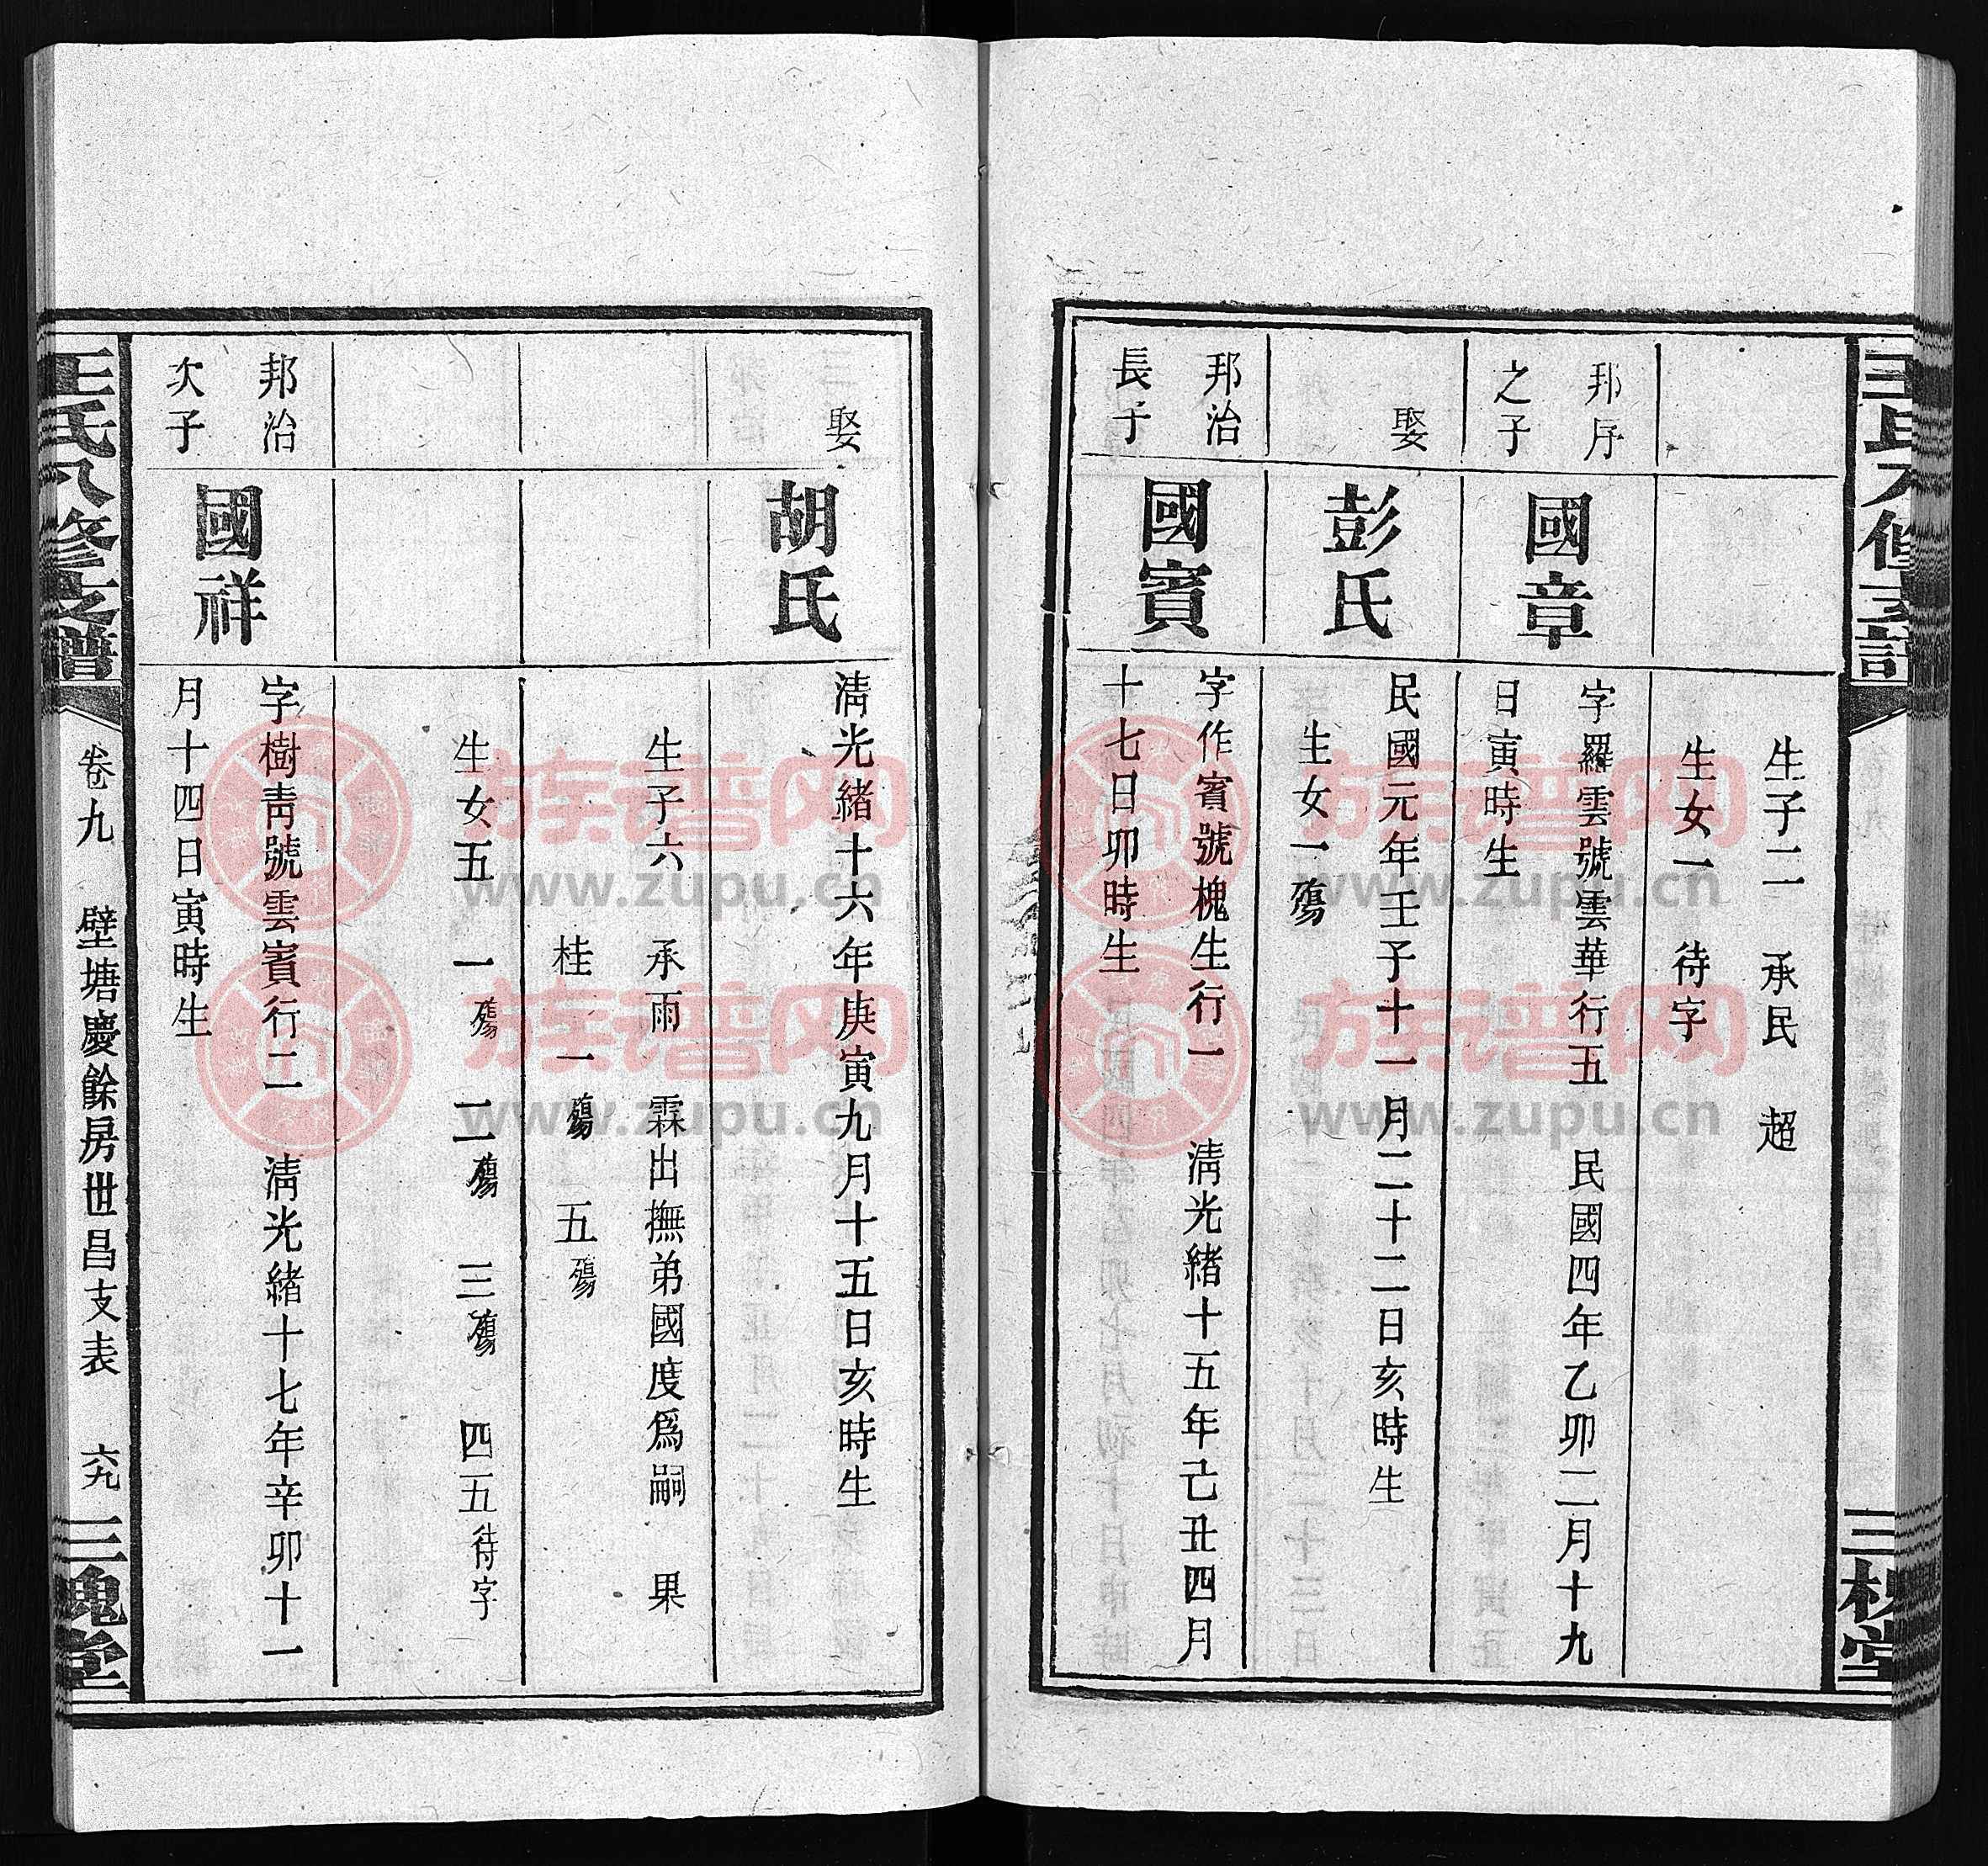 王氏八修支譜
三槐堂
生子二　承民　超
生女一　待字
邦序
之子
國章
字羅雲號雲華行五　民國四年乙卯二月十九
日寅時生
娶
彭氏
民國元年壬子十一月二十二日亥時生
生女一殤
邦治
長子
國賓
字作賓號槐生行一　清光緒十五年己丑四月
十七日卯時生
娶
胡氏
清光緒十六年庚寅九月十五日亥時生
生子六　承雨　霖出撫弟國度爲嗣　果
桂　一殤　五殤
生女五　一殤　二殤　三殤　四五待字
邦治
次子
國祥
字樹青號雲賓行二　清光緒十七年辛卯十一
月十四日寅時生
王氏八修支譜
卷九　壁塘慶餘房世昌支表　六九
三槐堂
族谱网
www.zupu.cn
族谱网
www.zupu.cn
族谱网
www.zupu.cn
族谱网
www.zupu.cn